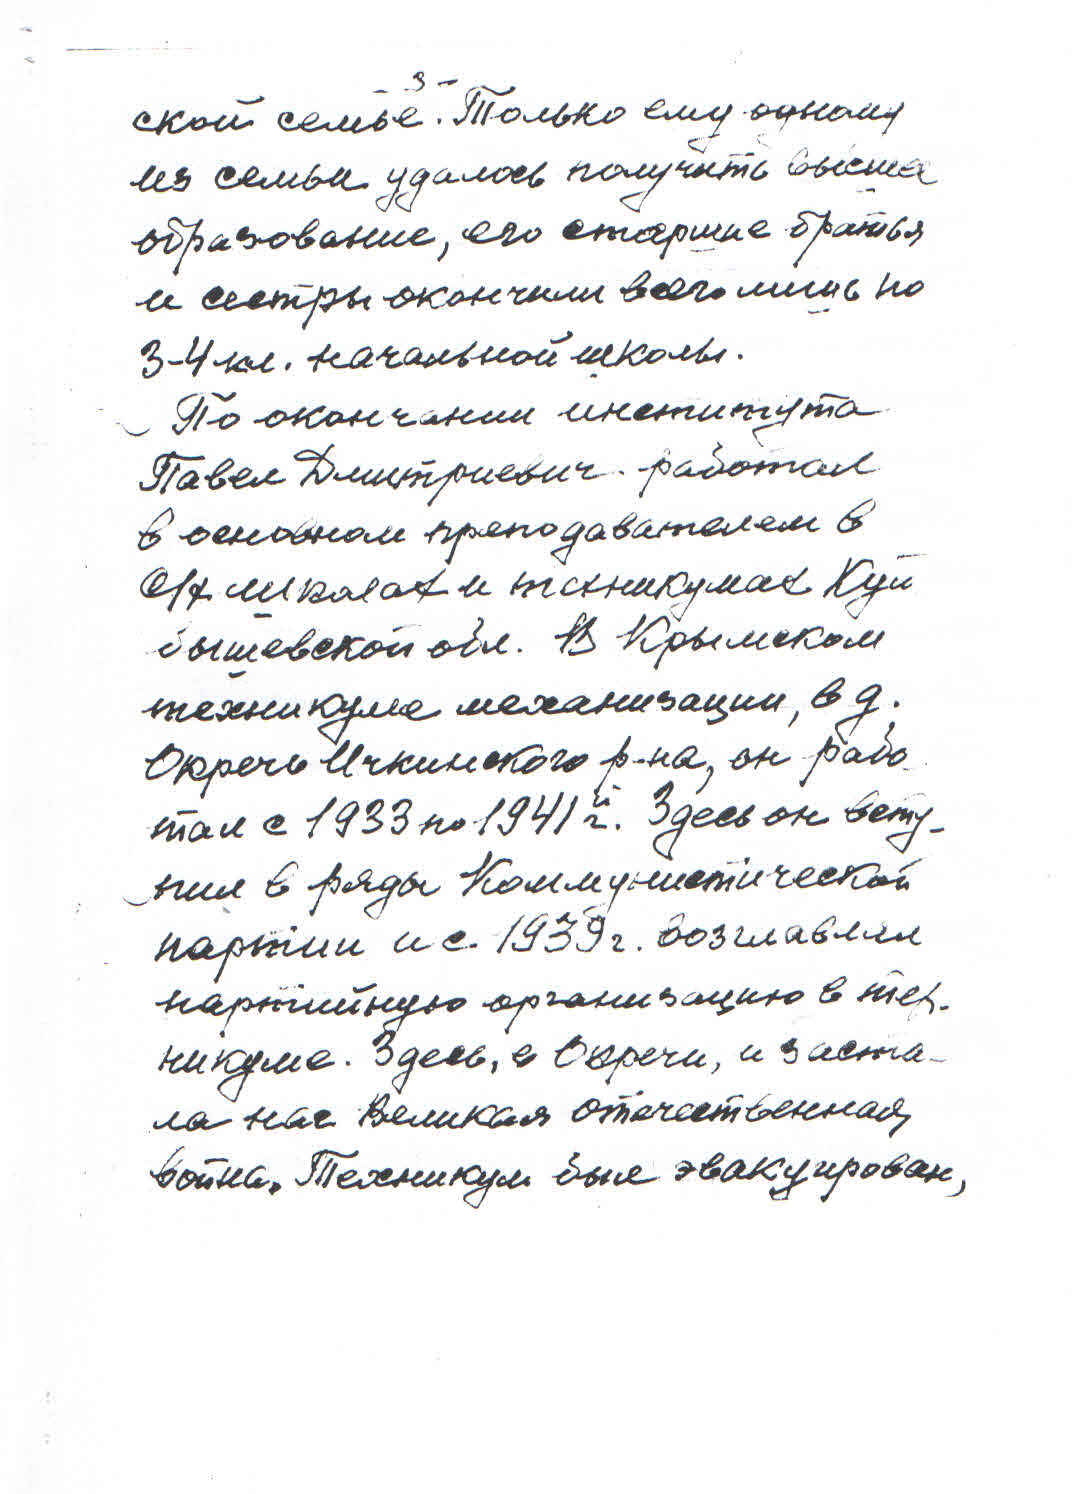 - 3 -
ской семье. Только ему одному
из семьи удалось получить высшее
образование, его старшие братья
и сестры окончили всего лишь по
3-4 кл. начальной школы.
По окончании института
Павел Дмитриевич работал
в основном преподавателем в
с/х школах и техникумах Куй
бышевской обл. В Крымском
техникуме механизации, в д.
Окречь Ичкинского р-на, он рабо
тал с 1933 по 1941 г. Здесь он всту-
пил в ряды Коммунистической
партии и с 1939 г. возглавлял
партийную организацию в тех-
никуме. Здесь, в Окречи, и заста-
ла нас Великая отечественная
война. Техникум был эвакуирован,